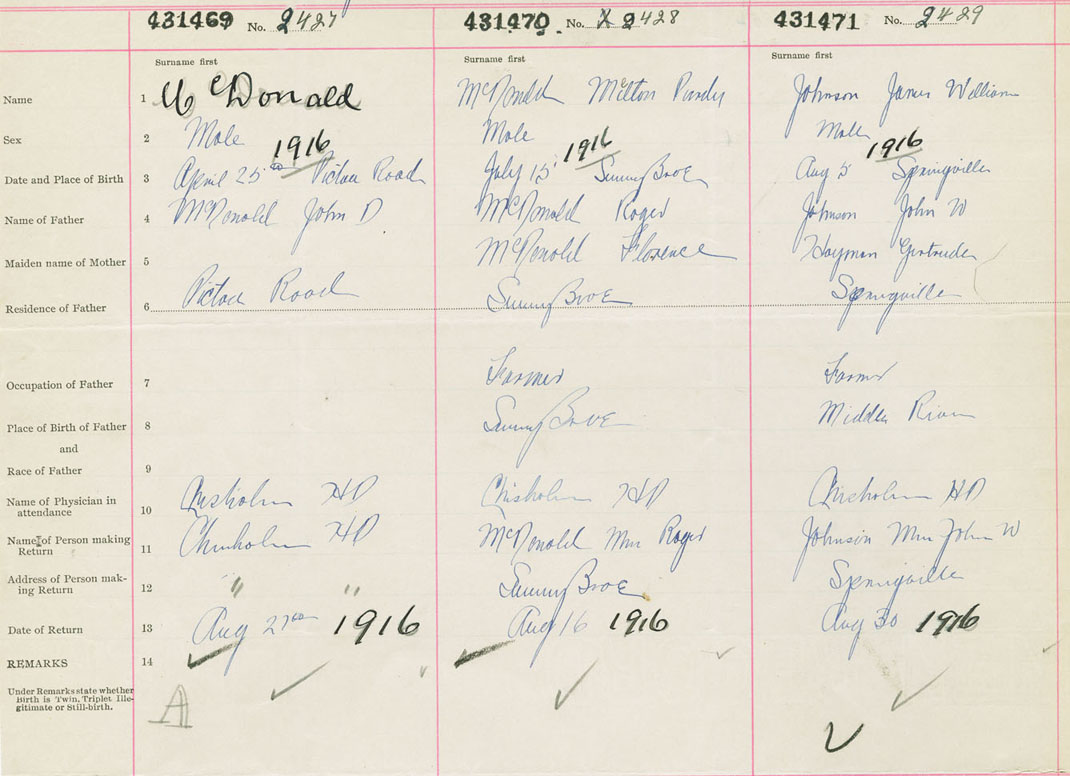 431469 No. 2427 431470 No. X 2428 431471 No. 2429
Surname first Surname first Surname first
Name 1 McDonald McDonald Milton Purdy Johnson James William
Sex 2 Male Male Male
1916 1916 1916
Date and Place of Birth 3 April 25 Pictou Road July 15 Sunny Brae Aug 5 Springville
Name of Father 4 McDonald John D McDonald Roger Johnson John W
Maiden name of Mother 5 McDonald Florence Hayman Gertrude
Residence of Father 6 Pictou Road Sunny Brae Springville
Occupation of Father 7 Farmer Farmer
Place of Birth of Father 8 Sunny Brae Middle River
and
Race of Father 9
Name of Physician in
attendance 10 Chisholm HD Chisholm HD Chisholm HD
Name of Person making
Return 11 Chisholm HD McDonald Mrs Roger Johnson Mrs John W
Address of Person mak-
ing Return 12 " " Sunny Brae Springville
Date of Return 13 Aug 27 1916 Aug 16 1916 Aug 30 1916
REMARKS 14
Under Remarks state whether
Birth is Twin, Triplet Ille-
gitimate or Still-birth.
A